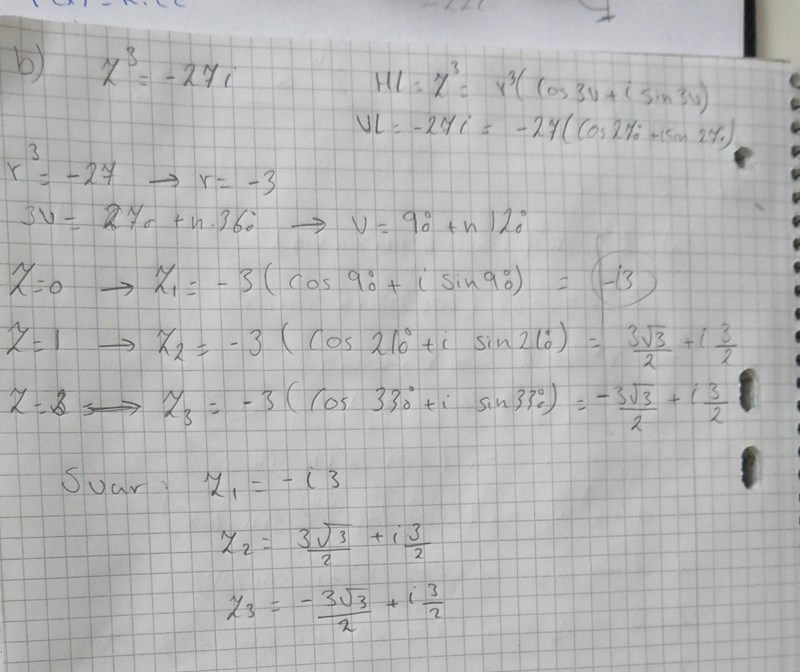 b) z³ = -27i
HL = z³ = r³(cos 3v + i sin 3v)
VL = -27i = -27(cos 270 + i sin 270)
r³ = -27 → r = -3
3v = 270 + n·360 → v = 90° + n 120°
z=0 → z₁ = -3 (cos 90° + i sin 90°) = -i3
z=1 → z₂ = -3 (cos 210° + i sin 210°) = 3√3/2 + i 3/2
z=2 → z₃ = -3 (cos 330° + i sin 330°) = -3√3/2 + i 3/2
Svar: z₁ = -i3
z₂ = 3√3/2 + i 3/2
z₃ = -3√3/2 + i 3/2